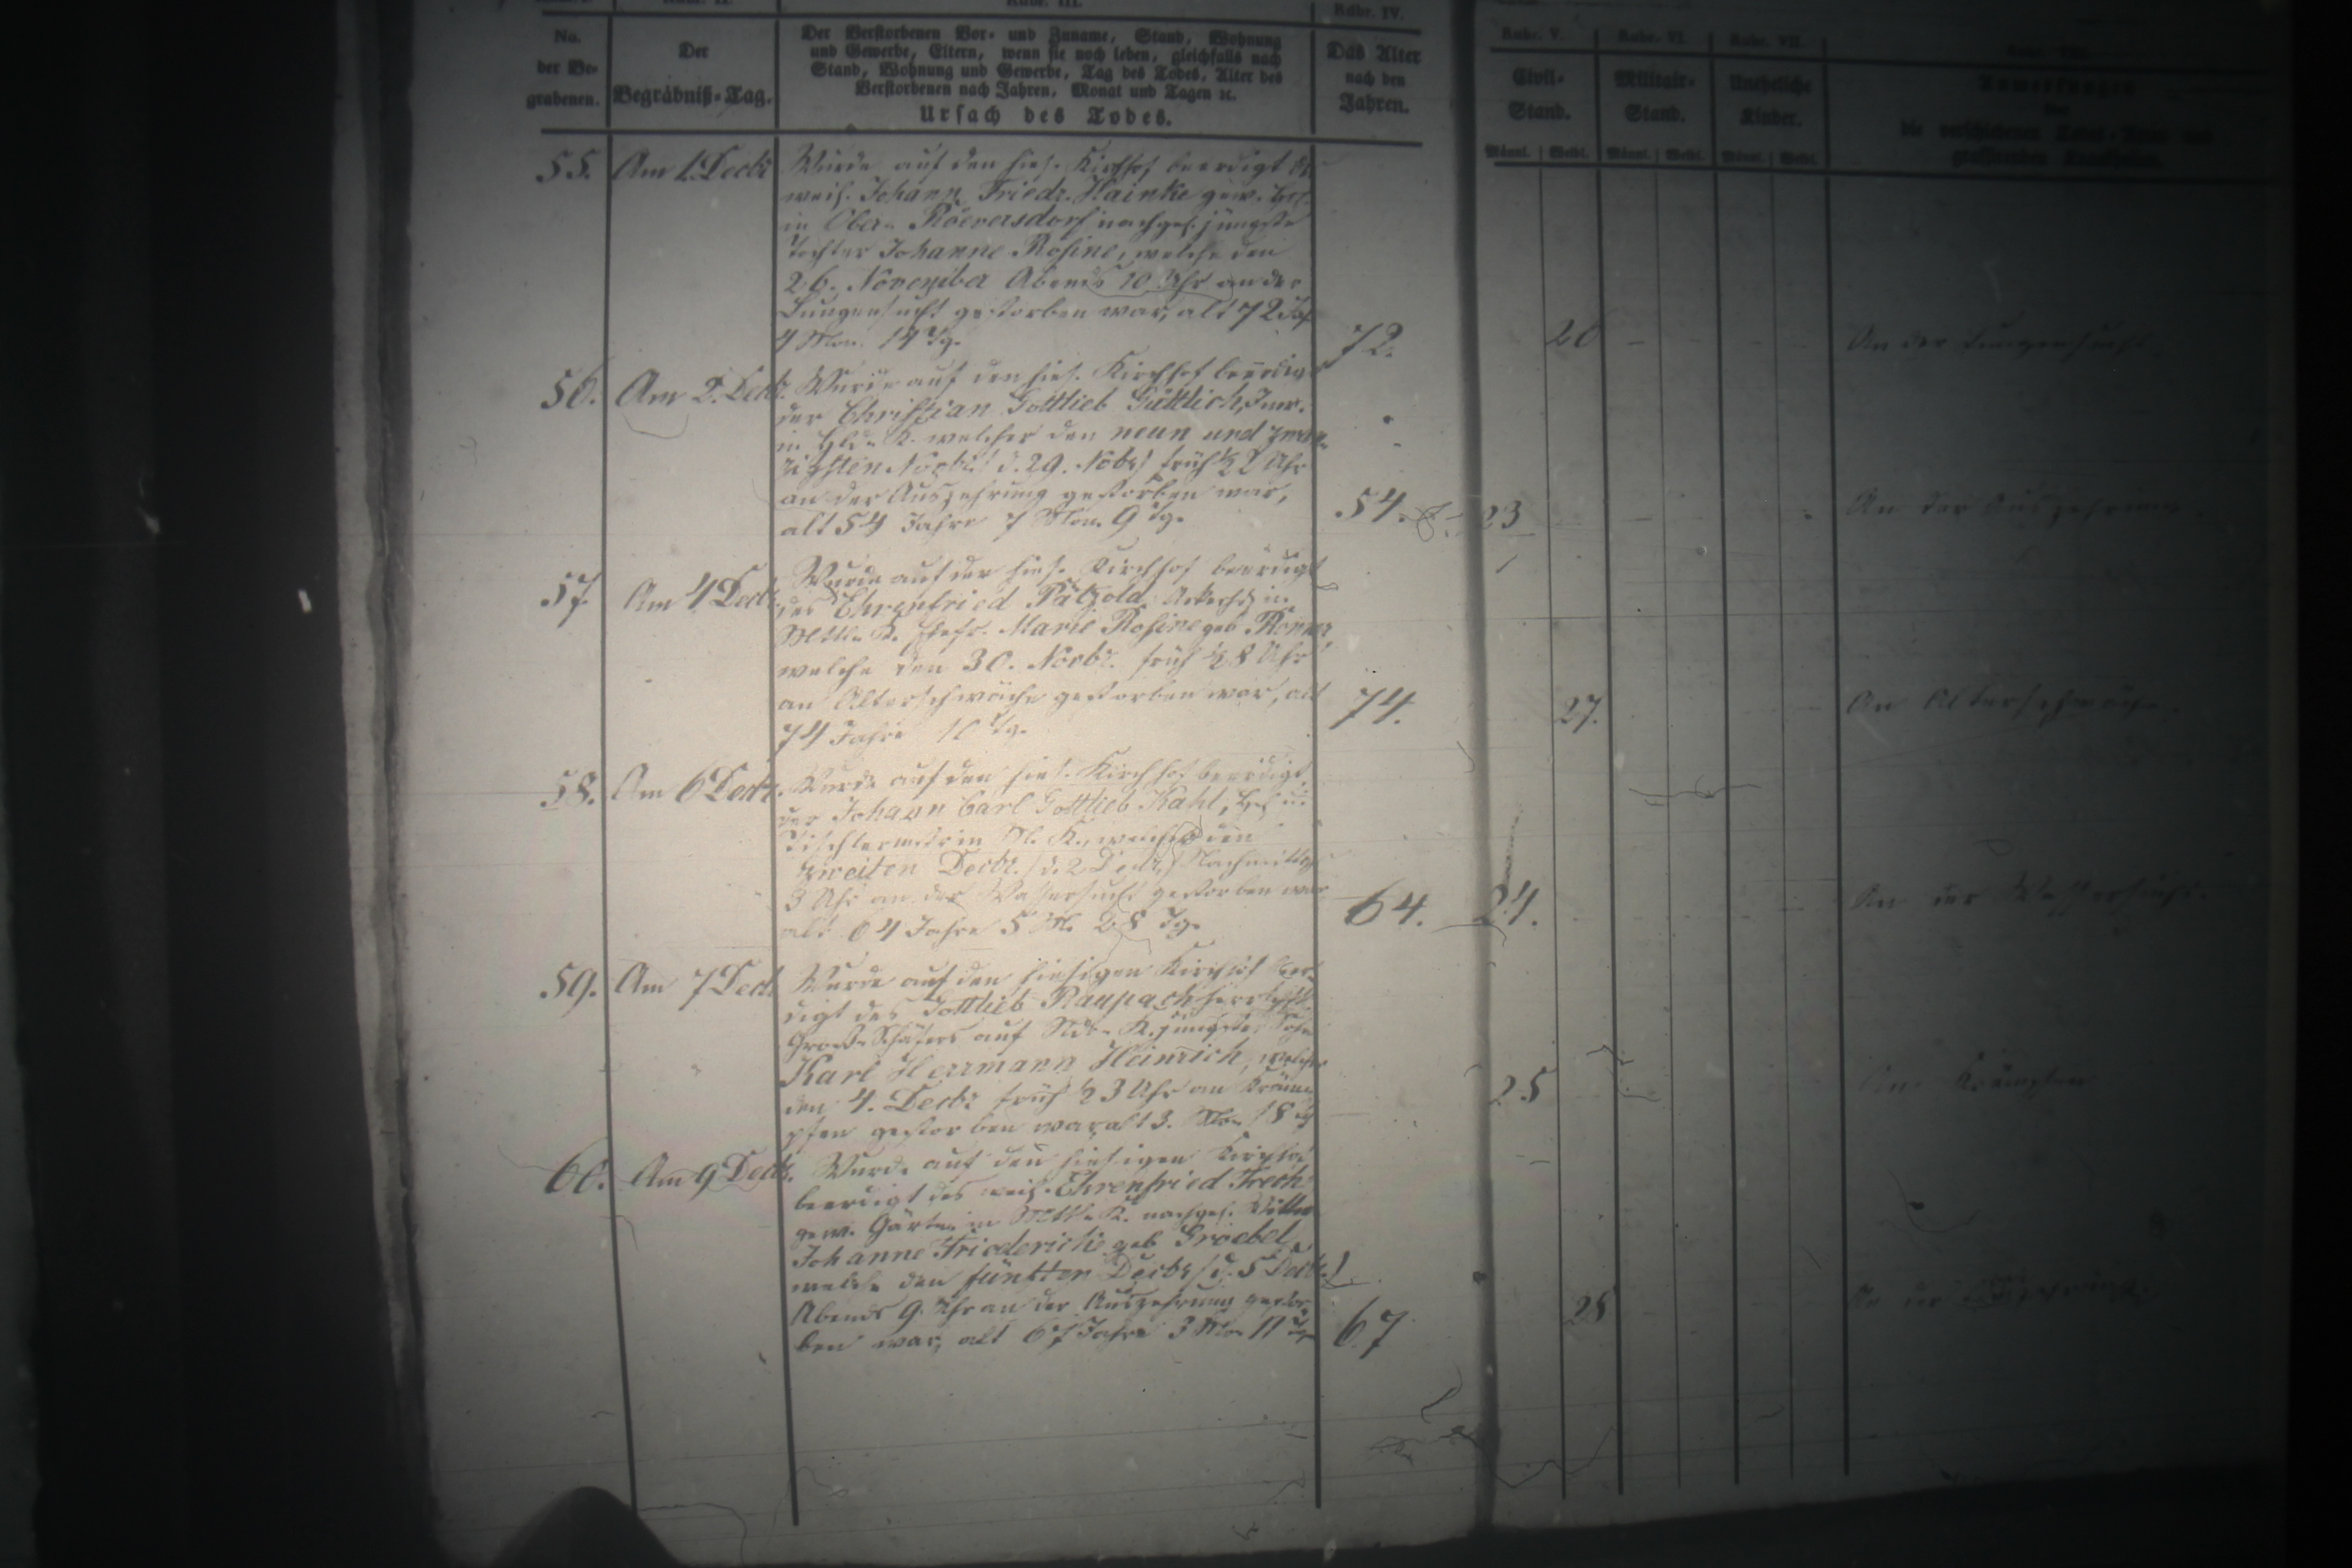 Rubr. III.
Rubr. IV.
Rubr. V.
Rubr. VI.
Rubr. VII.
No.
der Be-
grabenen.
Der
Begräbniß-Tag.
Der Verstorbenen Vor- und Zuname, Stand, Wohnung
und Gewerbe, Eltern, wenn sie noch leben, gleichfalls nach
Stand, Wohnung und Gewerbe, Tag des Todes, Alter des
Verstorbenen nach Jahren, Monat und Tagen ꝛc.
Ursach des Todes.
Das Alter
nach den
Jahren.
Civil-
Stand.
Militair-
Stand.
Uneheliche
Kinder.
Anmerkungen
Männl. Weibl. Männl. Weibl. Männl. Weibl.
55. Am 1. Decbr
Wurde auf den hies. Kirchhof beerdigt
weil. Johann Friedr. Hainke gew.
in Ober- Röversdorf nachgel. jüngste
Tochter Johanne Rosine, welche den
26. November Abends 10 Uhr an der
Lungensucht gestorben war, alt 72 Jah
4 Mon. 14 Tg.
72. 26 An der Lungensucht.
56. Am 2. Decbr.
Wurde auf den hies. Kirchhof beerdigt
der Christian Gottlieb Güttlich, Inw.
in K. welcher den neun und zwan-
zigsten Novbr. / d. 29. Nobr / früh ½ 2 Uhr
an der Auszehrung gestorben war,
alt 54 Jahre 7 Mon. 9 Tg.
54. 23 An der Auszehrung
57. Am 4 Decbr
Wurde auf den hies. Kirchhof beerdigt
des Ehrenfried Pätzold, in
Mttl. K. Ehefr. Marie Rosine geb.
welche den 30. Novbr. früh ½ 8 Uhr
an Altersschwäche gestorben war, alt
74 Jahre 10 Tg.
74. 27. An Altersschwäche.
58. Am 6 Decbr.
Wurde auf den hies. Kirchhof beerdigt
der Johann Carl Gottlieb Kahl, u.
Tischlermstr in K., welcher den
zweiten Decbr. / d. 2 Decbr, / Nachmittag
3 Uhr an der Wassersucht gestorben war
alt 64 Jahre 5 M. 28 Tg.
64. 24. An der Wassersucht.
59. Am 7 Decb
Wurde auf den hiesigen Kirchhof beer-
digt des Gottlieb Raupach herrschftl.
Groß-Schäfers auf Ndr- K. jüngster Sohn
Karl Herrmann Heinrich, welcher
den 4. Decbr früh ½ 3 Uhr an Kräm-
pfen gestorben war, alt 3. Mon 18 Tg
25 An Krämpfen
60. Am 9 Decbr.
Wurde auf den hiesigen Kirchhof
beerdigt des weil. Ehrenfried
gew. Gärtner in Mttl- K. nachgel. Wittwe
Johanne Friederike geb Groebel,
welche den fünften Decbr / d. 5 Decbr. /
Abends 9. Uhr an der Auszehrung gestor-
ben war, alt 67 Jahre 3 Mon 11 Tg
67 28 An der Auszehrung.